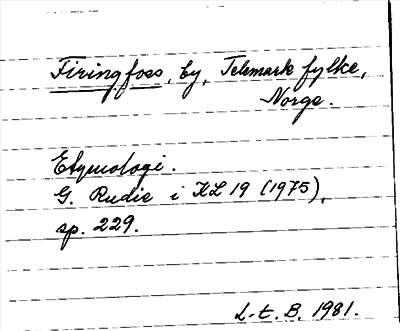 Firingfoss, by, Telemark fylke,
Norge.
Etymologi.
G. Rudie i KL 19 (1975),
sp. 229.
L-t. B. 1981.